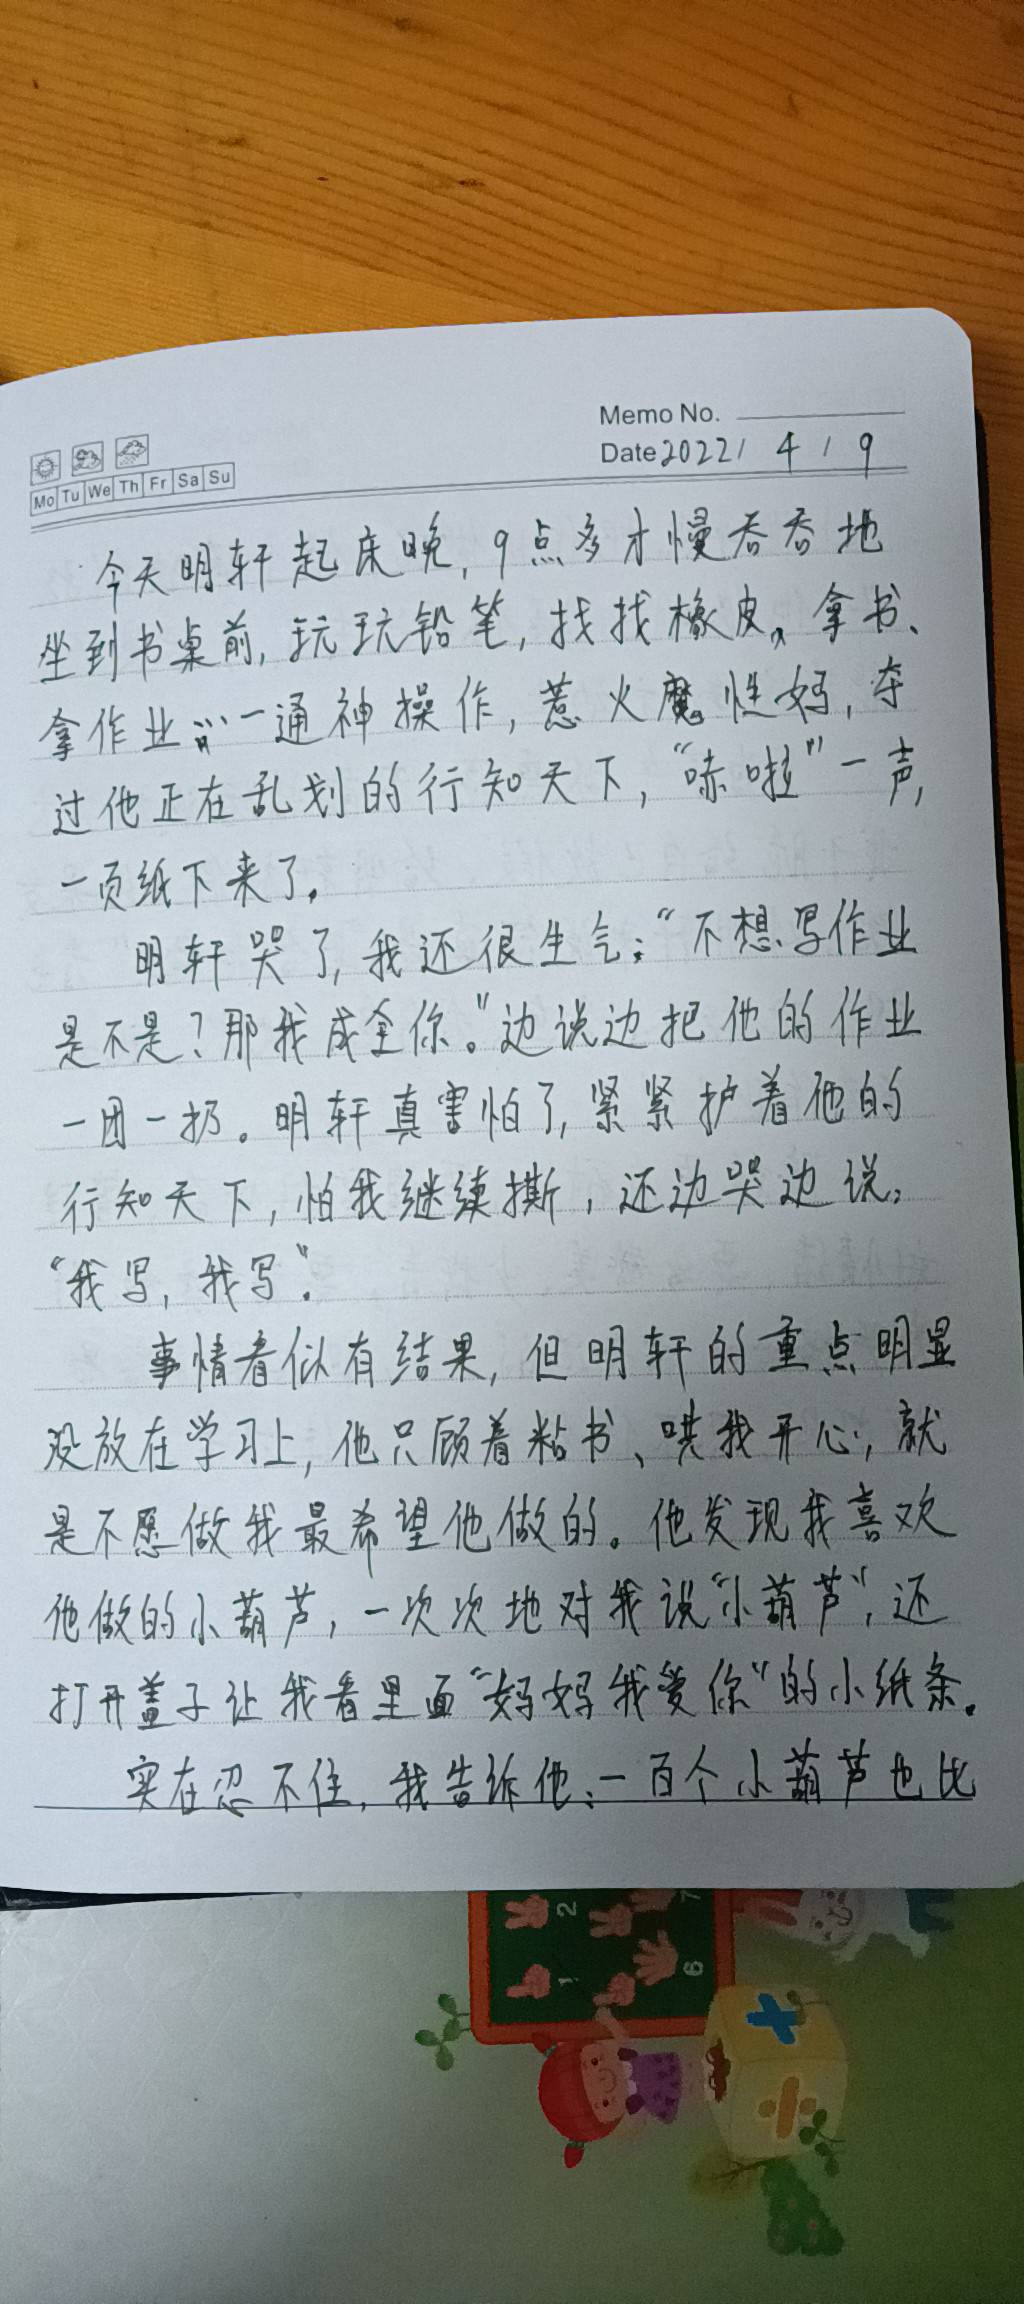 Memo No.
Date 2022 / 4 / 9
Mo Tu We Th Fr Sa Su
今天明轩起床晚,9点多才慢吞吞地
坐到书桌前,玩玩铅笔,找找橡皮、拿书、
拿作业……一通神操作,惹火魔性妈,夺
过他正在乱划的行知天下,“哧啦”一声,
一页纸下来了。
明轩哭了,我还很生气:“不想写作业
是不是?那我成全你。”边说边把他的作业
一团一扔。明轩真害怕了,紧紧护着他的
行知天下,怕我继续撕,还边哭边说:
“我写,我写”.
事情看似有结果,但明轩的重点明显
没放在学习上,他只顾着粘书、哄我开心,就
是不愿做我最希望他做的。他发现我喜欢
他做的小葫芦,一次次地对我说“小葫芦”,还
打开盖子让我看里面“妈妈我爱你”的小纸条。
实在忍不住,我告诉他:一百个小葫芦也比
1 2 6 7